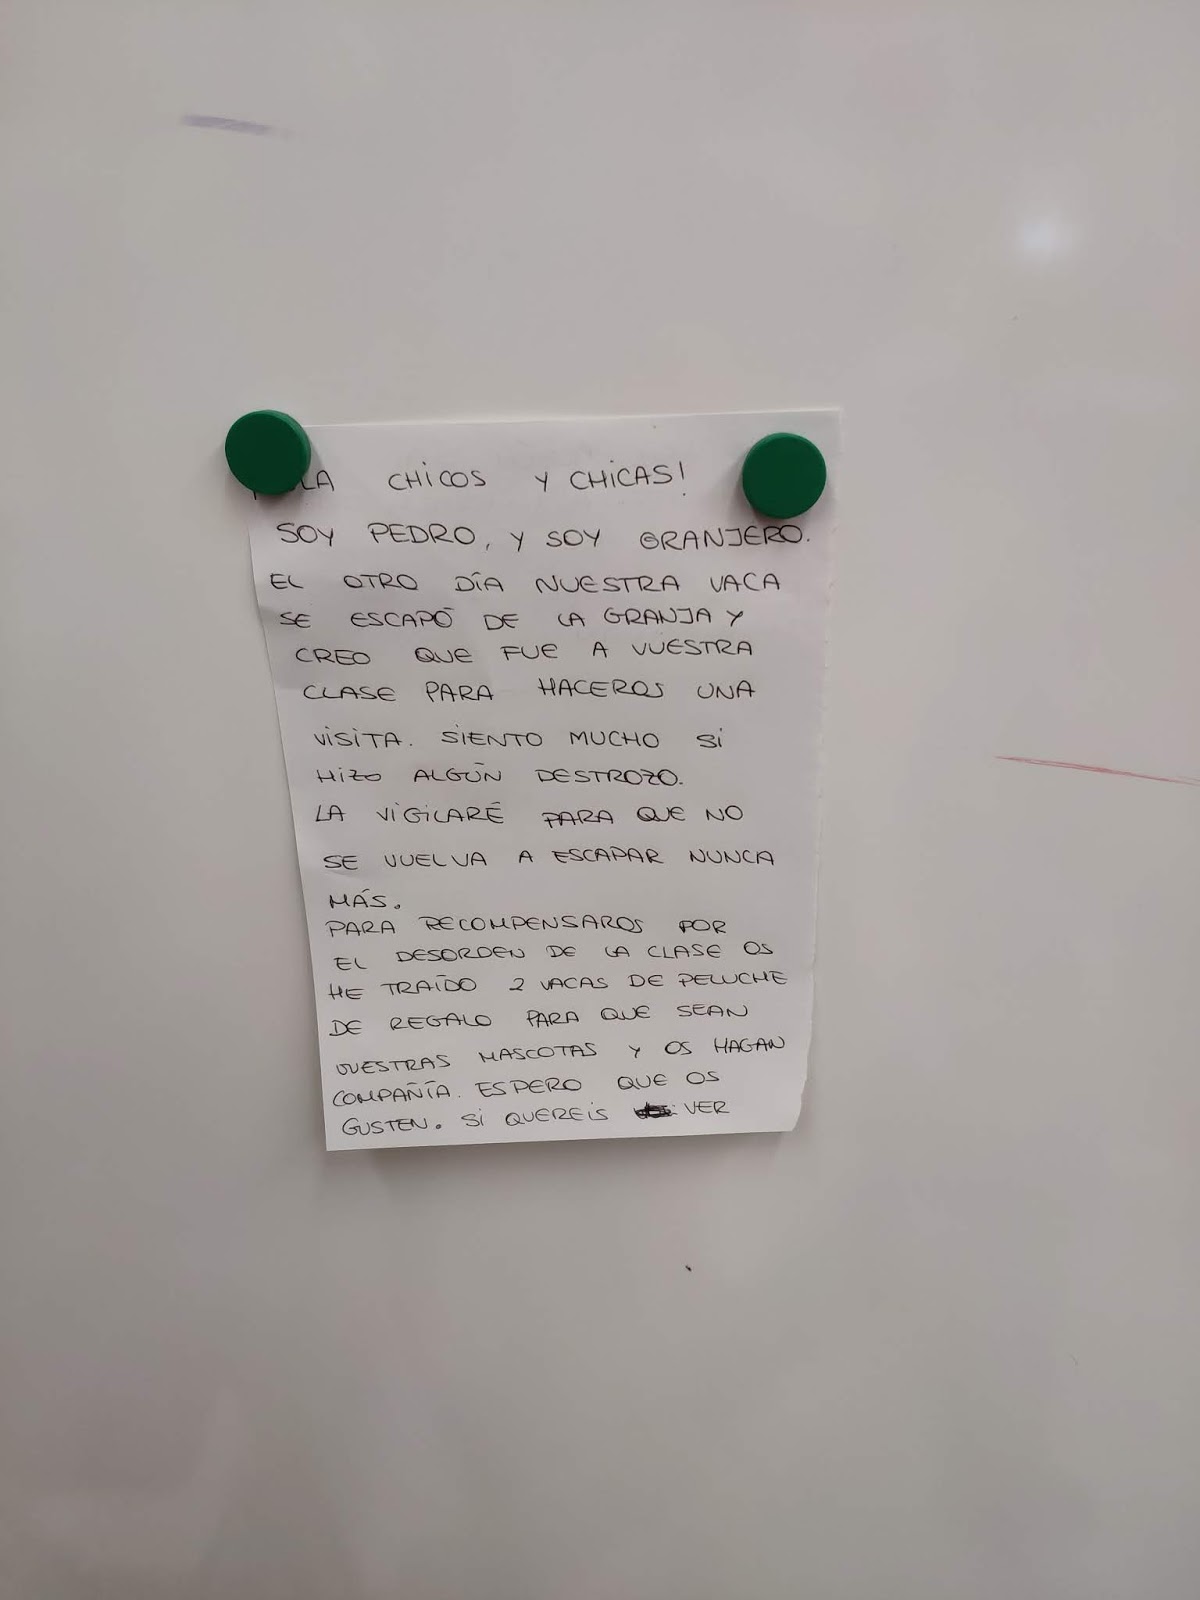 HOLA CHICOS Y CHICAS!
SOY PEDRO, Y SOY GRANJERO.
EL OTRO DÍA NUESTRA VACA
SE ESCAPÓ DE LA GRANJA Y
CREO QUE FUE A VUESTRA
CLASE PARA HACEROS UNA
VISITA. SIENTO MUCHO SI
HIZO ALGÚN DESTROZO.
LA VIGILARÉ PARA QUE NO
SE VUELVA A ESCAPAR NUNCA
MÁS.
PARA RECOMPENSAROS POR
EL DESORDEN DE LA CLASE OS
HE TRAÍDO 2 VACAS DE PELUCHE
DE REGALO PARA QUE SEAN
VUESTRAS MASCOTAS Y OS HAGAN
COMPAÑÍA. ESPERO QUE OS
GUSTEN. SI QUEREIS VER